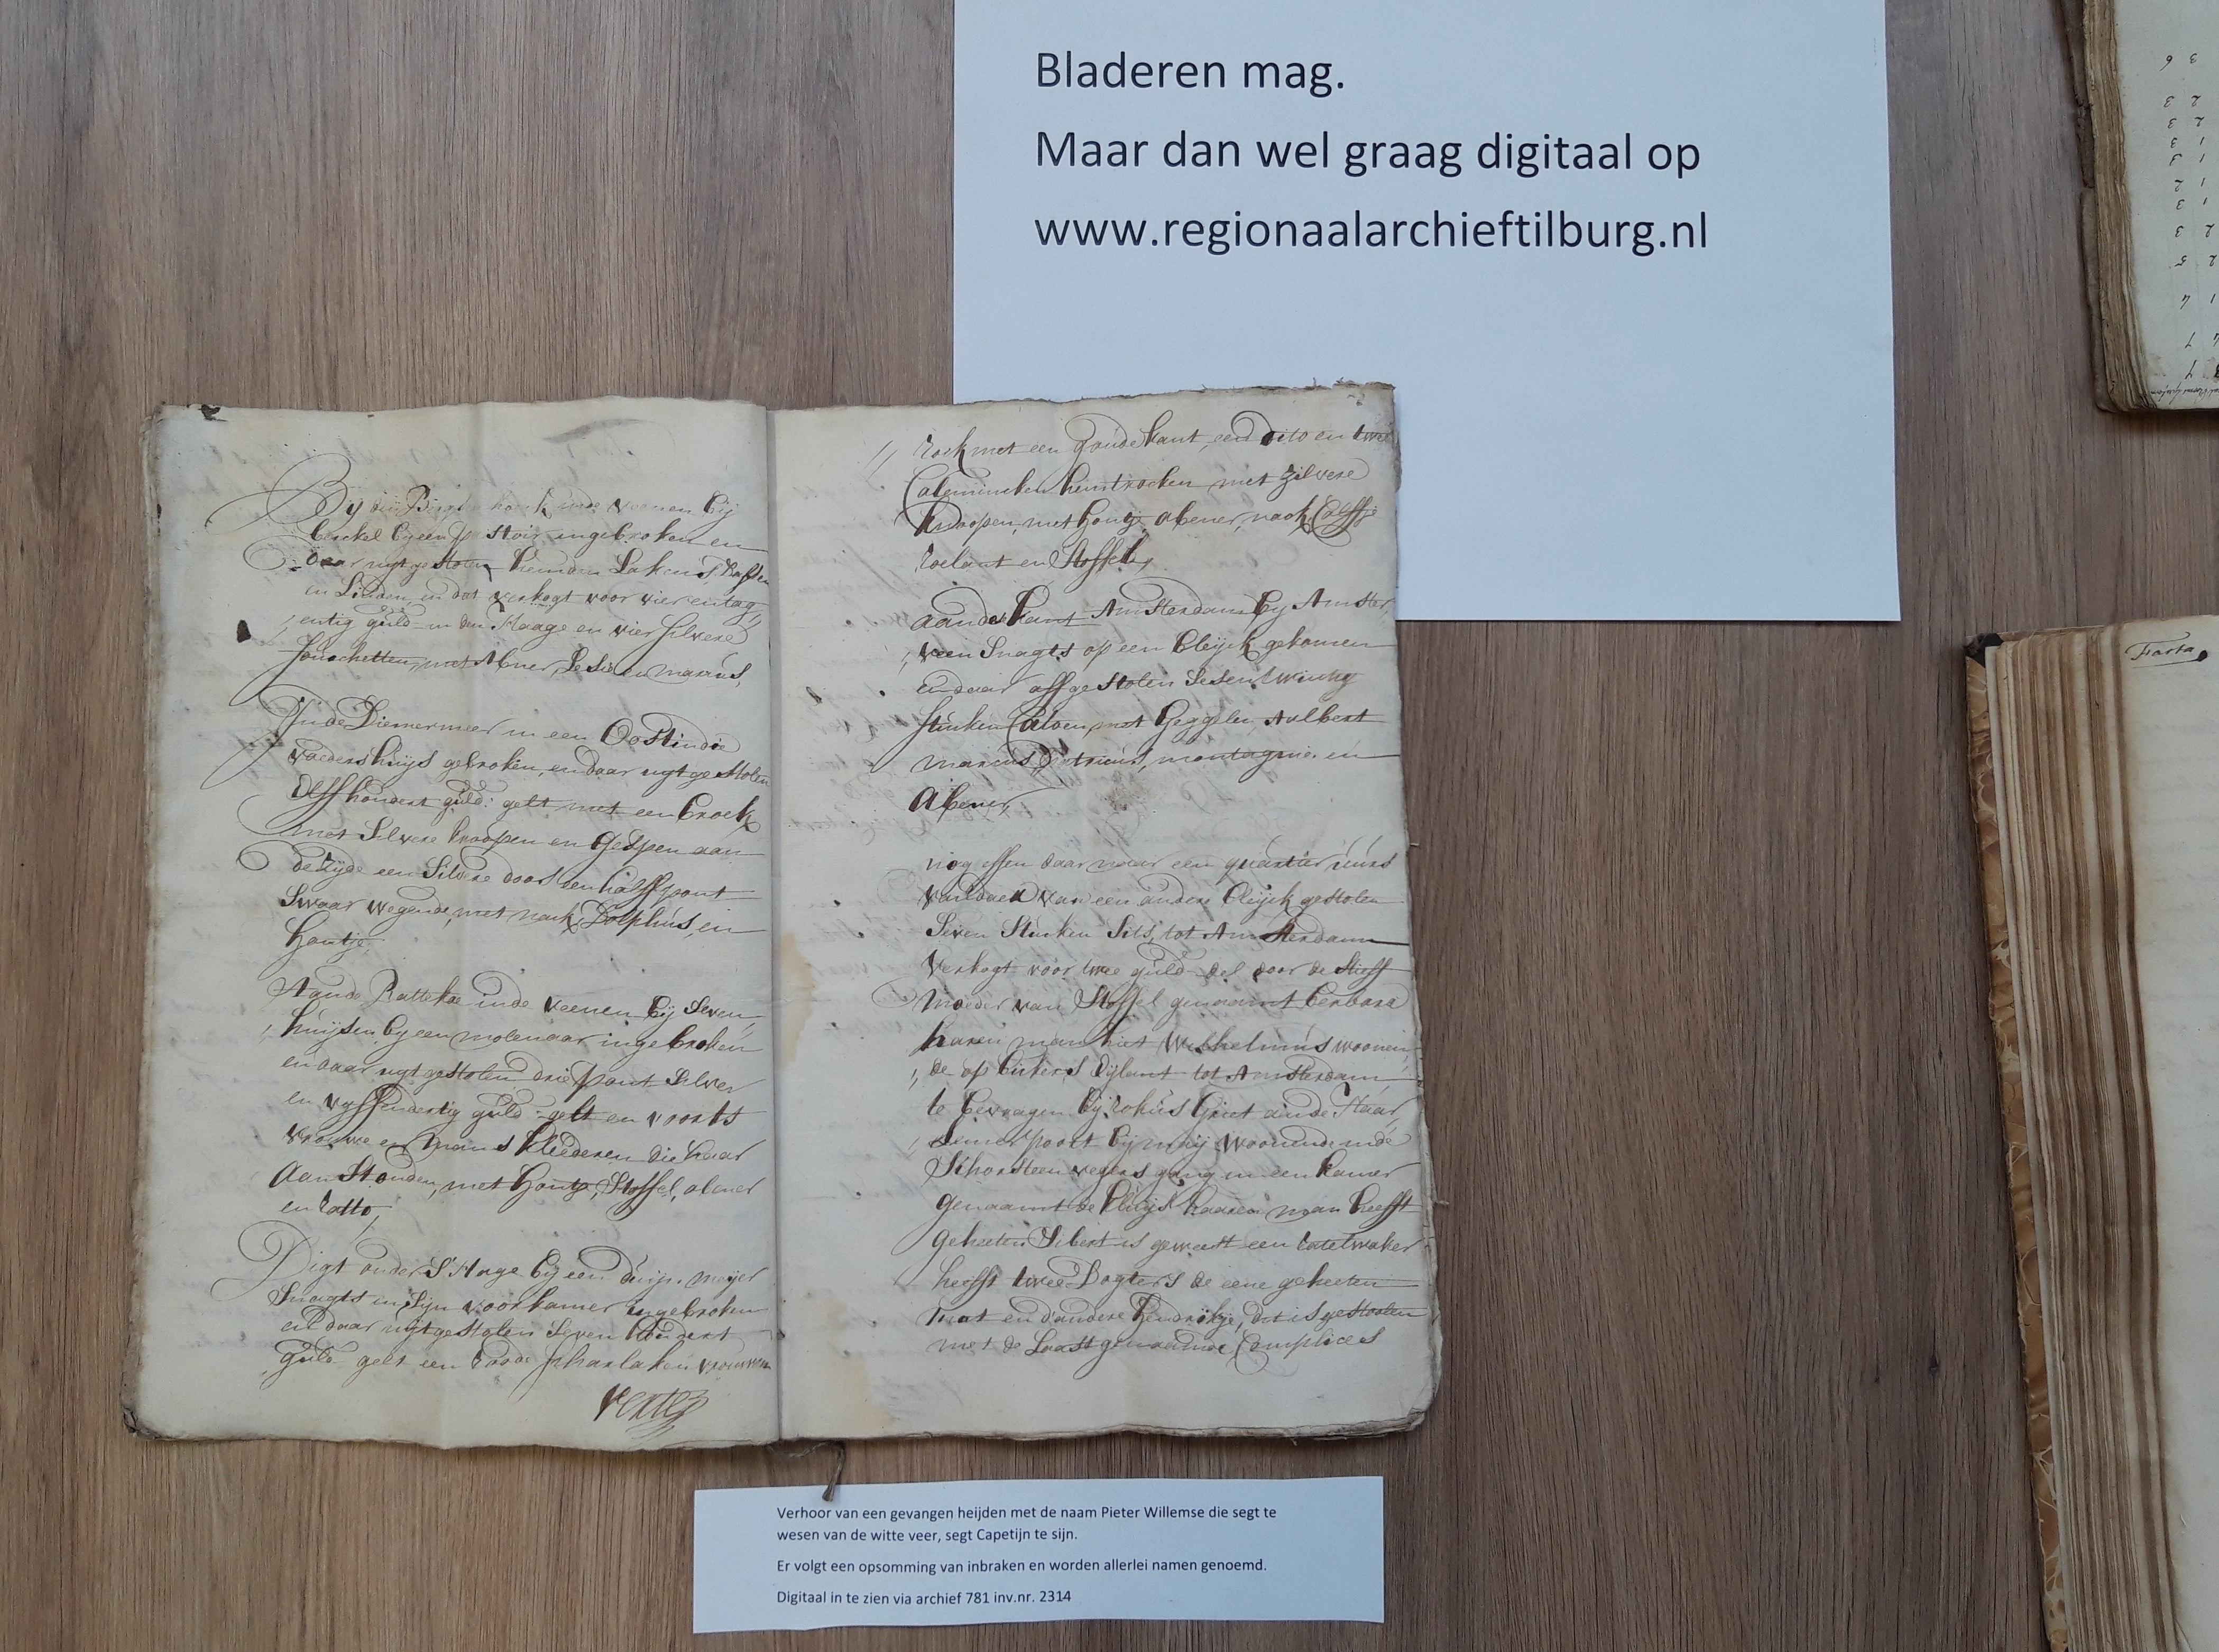 Bladeren mag.
Maar dan wel graag digitaal op
www.regionaalarchieftilburg.nl
Bij veenen bij
berckel by een ingebroken en
daar uijt gestolen hemden Lakens
en Linden, en dat verkogt voor vier entag,,
,,entig guld in den Haage en vier silvere
met Abner, en marcus,
In de Diemermeer in een Oostindis
vaeders huijs gebroken, en daar uijt gestolen
Olff hondert guld: gelt met een broek
met Silvere knoopen en gespen aan
de zijde een Silvere doos een halff pont
Swaar wegende, met nack, Dolphus, en
hantje
Aande Rattekae inde veenen bij Seven,,
,,huijsen by een molenaar ingebroken
en daar uijt gestolen drie pont Silver
en vyffendertig guld gelt en voorts
vrouwe en mans kleederen die haar
aanstonden, met Stoffel, abner
en Ratto,
Digt onder S'Hage bij een meijer
Snagts in Sijn voorkamer ingebroken
en daar uijt gestolen Seven hondert
guld gelt een roode scharlaken vrouwen
verte
rock met een goude kant, een dito en twee
Calemincken hemtrocken met zilvere
knoopen, met abener, nack,
roelant en Stoffel,
aande kant Amsterdam by Amster,,
,,veen Snagts op een bleijck gekomen
en daar aff gestolen Sesentwintig
stucken met Geggelen, Aelbert
marcus, montagnie en
Abener,
nog effen daar naar een quartier uurs
van daen van een andere bleijck gestolen
Seven Stucken Sits, tot Amsterdam
verkogt voor twee guld del door de Stieff
moeder van Stoffel genaamt berbara
haren man hiet Wilhelmus woonen,,
,,de op tot Amsterdam,
te bevragen bij rokus Griet ande Haar,,
,,lemerpoort bij mij woonende inde
Schorsteen vegers gang in een kamer
genaamt de kluijs haaren man heeft
geheeten Sibert is geweest een ratelwaker
heefft twee Dogters de eene geheeten
mat en d'andere Hendrikje, dit is gestoolen
met de Laast genaamde Complices
Verhoor van een gevangen heijden met de naam Pieter Willemse die segt te
wesen van de witte veer, segt Capetijn te sijn.
Er volgt een opsomming van inbraken en worden allerlei namen genoemd.
Digitaal in te zien via archief 781 inv.nr. 2314